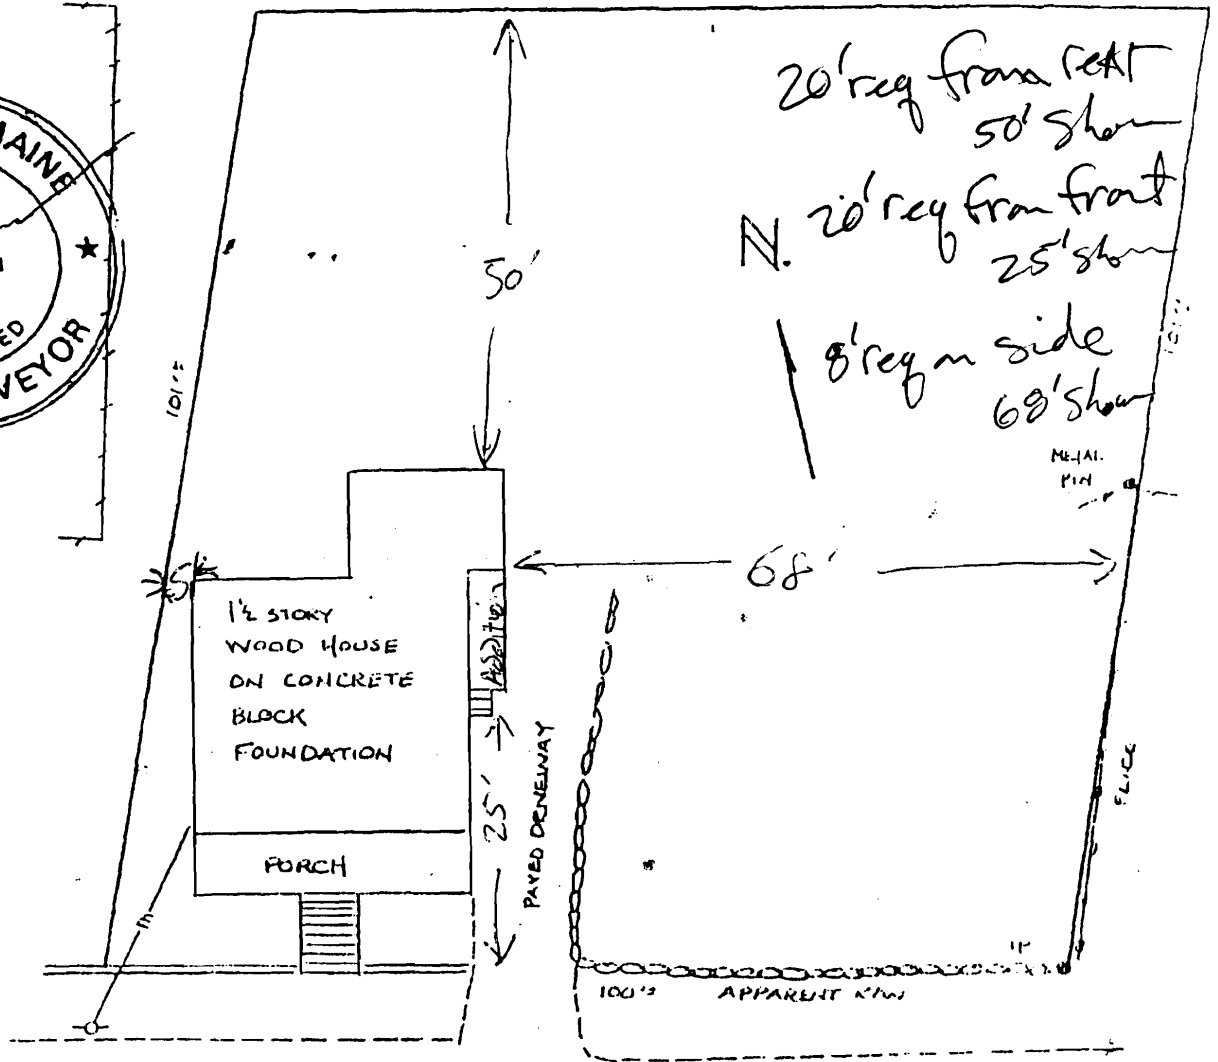 MAINE
ED
VEYOR
20' req from rear
50' Shown
20' req from front
25' shown
N.
50'
8' req on side
68' Shown
101'±
101'±
METAL
PIN
5'
68'
1½ STORY
WOOD HOUSE
ON CONCRETE
BLOCK
FOUNDATION
Addition
25'
PAVED DRIVEWAY
PORCH
IP
100'±
APPARENT R/W